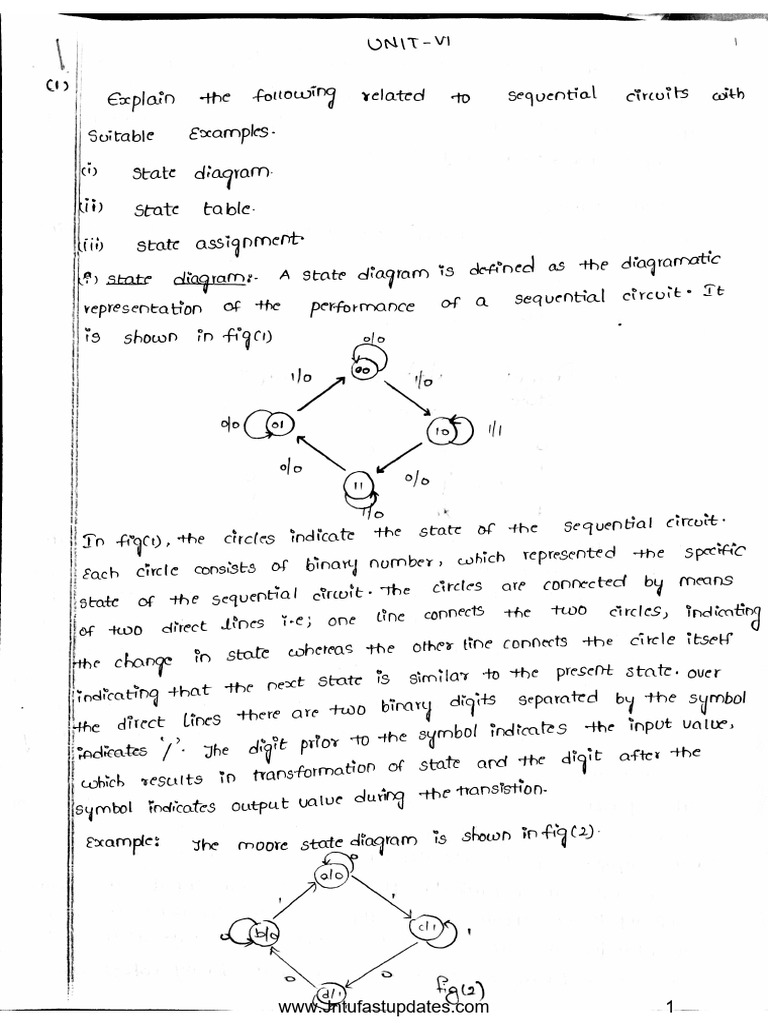 UNIT-VI
1
(1)
Explain the following related to sequential circuits with
Suitable Examples.
(i) State diagram.
(ii) State table.
(iii) State assignment.
state diagram:- A state diagram is defined as the diagramatic
representation of the performance of a sequential circuit. It
is shown in fig(1)
0/0
00
1/0
1/0
0/0
01
10
1/1
0/0
0/0
11
1/0
In fig(1), the circles indicate the state of the sequential circuit.
Each circle consists of binary number, which represented the specific
state of the sequential circuit. The circles are connected by means
of two direct lines i.e; one line connects the two circles, indicating
the change in state whereas the other line connects the circle itself
indicating that the next state is similar to the present state. over
the direct lines there are two binary digits separated by the symbol
indicates '/'. The digit prior to the symbol indicates the input value,
which results in transformation of state and the digit after the
symbol indicates output value during the transistion.
Example: The moore state diagram is shown in fig(2).
0
a/0
1
1
0
b/0
c/1
1
0
0
d/1
fig(2)
www.Jntufastupdates.com
1